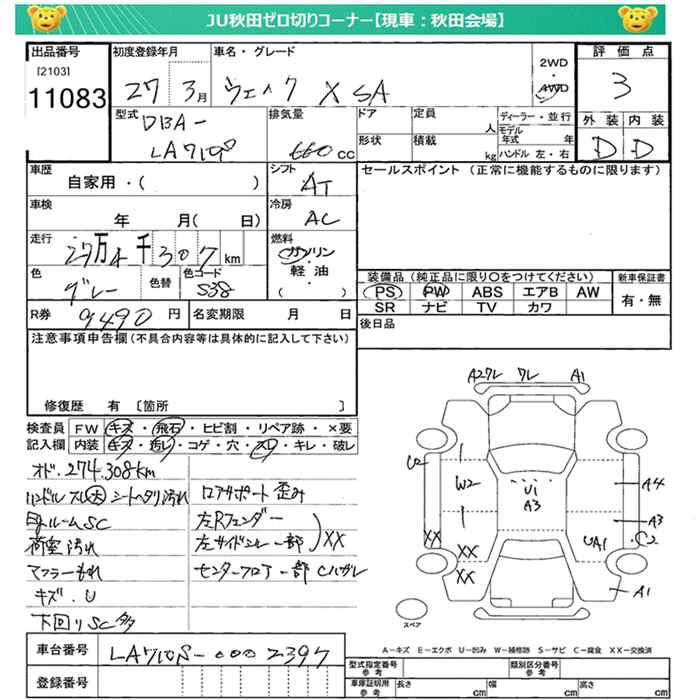 JU秋田ゼロ切りコーナー【現車：秋田会場】
出品番号 初度登録年月 車名・グレード 評価点
[2103]
11083
27 3月 ウェイク X SA
2WD
4WD
3
型式 DBA-
LA710S
排気量
660 cc
ドア 定員 人
形状 積載 kg
ディーラー・並行
モデル年式 年
ハンドル 左・右
外装 内装
D D
車歴
自家用・( )
シフト
AT
セールスポイント (正常に機能するものに限ります)
車検
年 月( 日)
冷房
AC
走行 27万4千307km
燃料
ガソリン
軽油・
( )
色 グレー 色替 色コード S38
装備品 (純正品に限り○をつけてください) 新車保証書
PS PW ABS エアB AW 有・無
SR ナビ TV カワ
R券 9490円 名変期限 月 日
後日品
注意事項申告欄(不具合内容等は具体的に記入して下さい)
修復歴 有 〔箇所 〕
検査員 FW キズ・飛石・ヒビ割・リペア跡・×要
記入欄 内装 キズ・汚レ・コゲ・穴・スレ・キレ・破レ
オド.274.308km
ハンドルスレ大 シートヘタリ汚れ
ルームSC
荷室汚れ
マフラーもれ
キズ.U
下回りSC多
ロアサポート歪み
左Rフェンダー
左サイドシル一部
XX
センターフロアー部Cハガレ
A2ワレ ワレ A1
U2
W2
U1
A3
A4
A3
XX
XX
XX
UA1
C2
A1
スペア
A-キズ E-エクボ U-凹み W-補修跡 S-サビ C-腐食 XX-交換済
車台番号 LA710S-0002397
登録番号
型式指定番号 参考 類別区分番号 参考
車庫証明用 参考 長さ cm 幅 cm 高さ cm